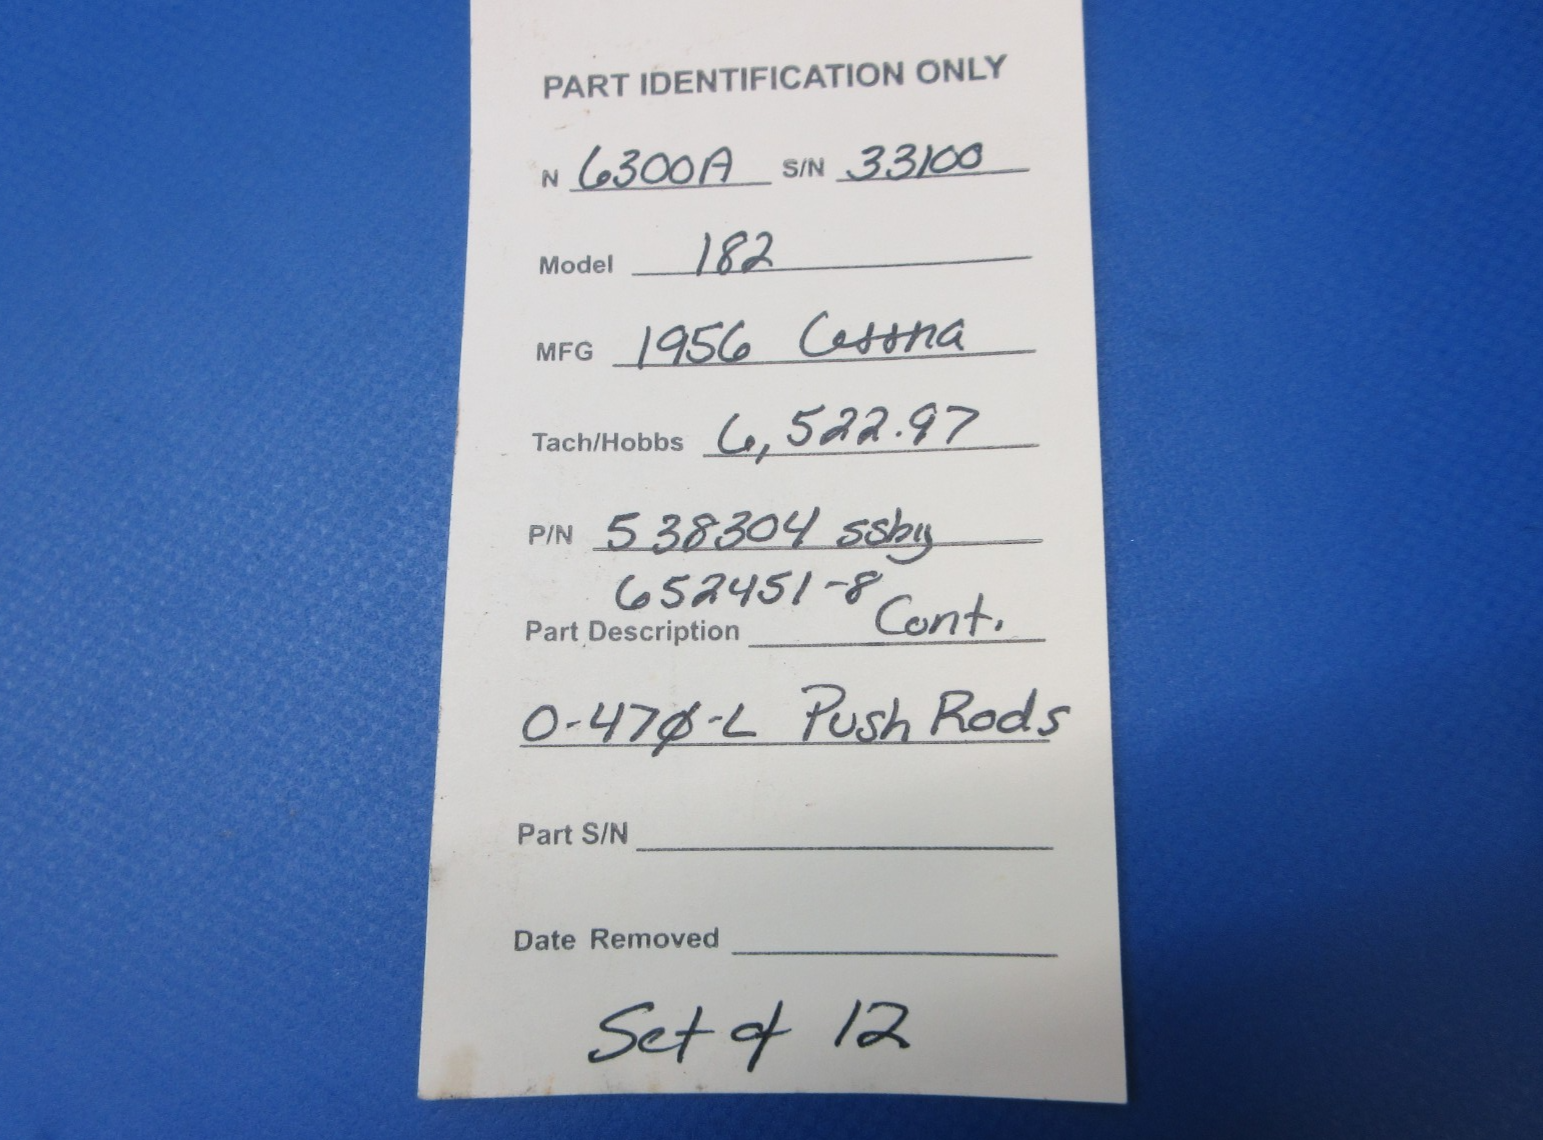 PART IDENTIFICATION ONLY
N 6300A S/N 33100
Model 182
MFG 1956 Cessna
Tach/Hobbs 6,522.97
P/N 538304 ssby
652451-8
Part Description Cont.
O-47Ø-L Push Rods
Part S/N
Date Removed
Set of 12